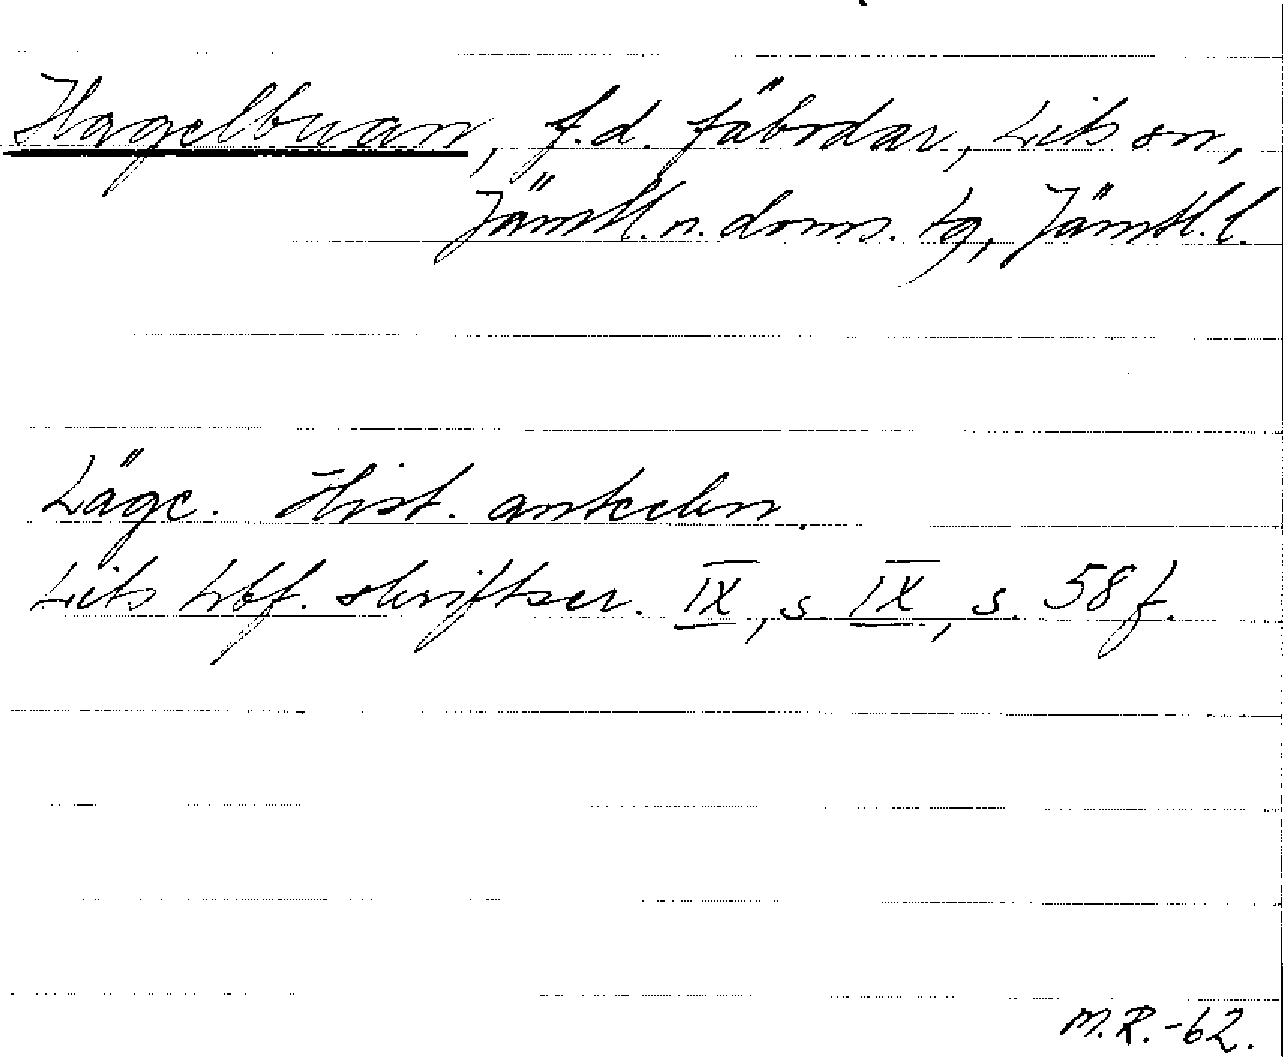 Hagelbuan, f.d. fäbodar, Lits sn,
Jämtl. n. doms. tg, Jämtl. l.
Läge. Hist. anteckn.
Lits hbf. skriftser. IX, s IX, s. 58 f.
M.R.-62.